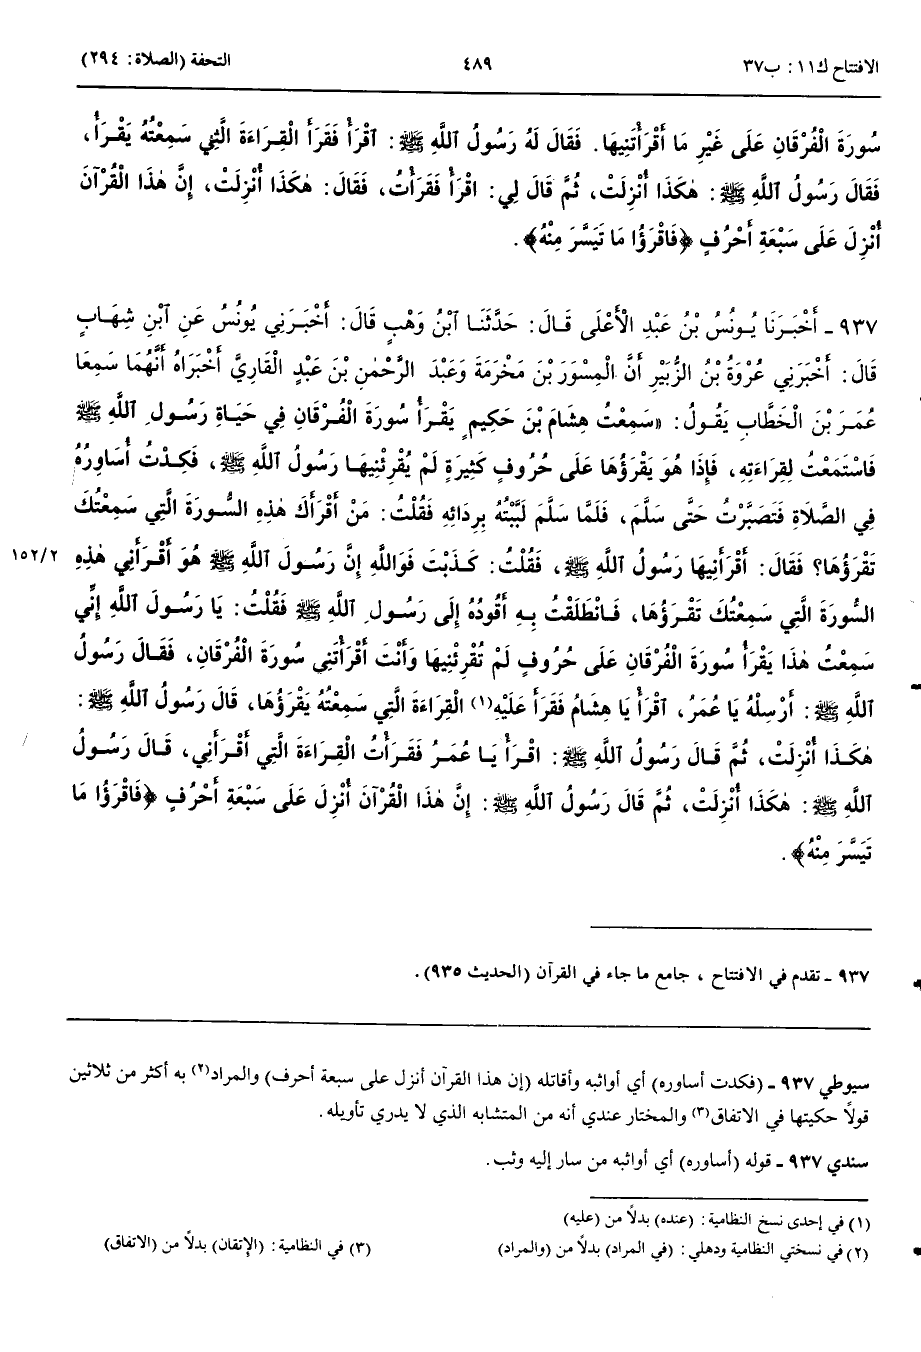 الافتتاح ك١١: ب٣٧ ٤٨٩ التحفة (الصلاة: ٢٩٤)
سُورَةَ الْفُرْقَانِ عَلَى غَيْرِ مَا أَقْرَأْتَنِيهَا. فَقَالَ لَهُ رَسُولُ ٱللَّهِ ﷺ: ٱقْرَأْ فَقَرَأَ الْقِرَاءَةَ الَّتِي سَمِعْتُهُ يَقْرَأُ،
فَقَالَ رَسُولُ ٱللَّهِ ﷺ: هٰكَذَا أُنْزِلَتْ، ثُمَّ قَالَ لِي: اقْرَأْ فَقَرَأْتُ، فَقَالَ: هٰكَذَا أُنْزِلَتْ، إِنَّ هٰذَا الْقُرْآنَ
أُنْزِلَ عَلَى سَبْعَةِ أَحْرُفٍ ﴿فَاقْرَؤُا مَا تَيَسَّرَ مِنْهُ﴾.
٩٣٧ ـ أَخْبَرَنَا يُونُسُ بْنُ عَبْدِ الْأَعْلَى قَالَ: حَدَّثَنَا ٱبْنُ وَهْبٍ قَالَ: أَخْبَرَنِي يُونُسُ عَنِ ٱبْنِ شِهَابٍ
قَالَ: أَخْبَرَنِي عُرْوَةُ بْنُ الزُّبَيْرِ أَنَّ الْمِسْوَرَ بْنَ مَخْرَمَةَ وَعَبْدَ الرَّحْمٰنِ بْنَ عَبْدٍ الْقَارِيَّ أَخْبَرَاهُ أَنَّهُمَا سَمِعَا
عُمَرَ بْنَ الْخَطَّابِ يَقُولُ: «سَمِعْتُ هِشَامَ بْنَ حَكِيمٍ يَقْرَأُ سُورَةَ الْفُرْقَانِ فِي حَيَاةِ رَسُولِ ٱللَّهِ ﷺ
فَاسْتَمَعْتُ لِقِرَاءَتِهِ، فَإِذَا هُوَ يَقْرَؤُهَا عَلَى حُرُوفٍ كَثِيرَةٍ لَمْ يُقْرِئْنِيهَا رَسُولُ ٱللَّهِ ﷺ، فَكِدْتُ أُسَاوِرُهُ
فِي الصَّلَاةِ فَتَصَبَّرْتُ حَتَّى سَلَّمَ، فَلَمَّا سَلَّمَ لَبَّبْتُهُ بِرِدَائِهِ فَقُلْتُ: مَنْ أَقْرَأَكَ هٰذِهِ السُّورَةَ الَّتِي سَمِعْتُكَ
تَقْرَؤُهَا؟ فَقَالَ: أَقْرَأَنِيهَا رَسُولُ ٱللَّهِ ﷺ، فَقُلْتُ: كَذَبْتَ فَوَاللَّهِ إِنَّ رَسُولَ ٱللَّهِ ﷺ هُوَ أَقْرَأَنِي هٰذِهِ ١٥٢/٢
السُّورَةَ الَّتِي سَمِعْتُكَ تَقْرَؤُهَا، فَانْطَلَقْتُ بِهِ أَقُودُهُ إِلَى رَسُولِ ٱللَّهِ ﷺ فَقُلْتُ: يَا رَسُولَ ٱللَّهِ إِنِّي
سَمِعْتُ هٰذَا يَقْرَأُ سُورَةَ الْفُرْقَانِ عَلَى حُرُوفٍ لَمْ تُقْرِئْنِيهَا وَأَنْتَ أَقْرَأْتَنِي سُورَةَ الْفُرْقَانِ، فَقَالَ رَسُولُ
ٱللَّهِ ﷺ: أَرْسِلْهُ يَا عُمَرُ، ٱقْرَأْ يَا هِشَامُ فَقَرَأَ عَلَيْهِ(١) الْقِرَاءَةَ الَّتِي سَمِعْتُهُ يَقْرَؤُهَا، قَالَ رَسُولُ ٱللَّهِ ﷺ:
هٰكَذَا أُنْزِلَتْ، ثُمَّ قَالَ رَسُولُ ٱللَّهِ ﷺ: اقْرَأْ يَا عُمَرُ فَقَرَأْتُ الْقِرَاءَةَ الَّتِي أَقْرَأَنِي، قَالَ رَسُولُ
ٱللَّهِ ﷺ: هٰكَذَا أُنْزِلَتْ، ثُمَّ قَالَ رَسُولُ ٱللَّهِ ﷺ: إِنَّ هٰذَا الْقُرْآنَ أُنْزِلَ عَلَى سَبْعَةِ أَحْرُفٍ ﴿فَاقْرَؤُا مَا
تَيَسَّرَ مِنْهُ﴾.
٩٣٧ ـ تقدم في الافتتاح ، جامع ما جاء في القرآن (الحديث ٩٣٥).
سيوطي ٩٣٧ ـ (فكدت أساوره) أي أواثبه وأقاتله (إن هذا القرآن أنزل على سبعة أحرف) والمراد(٢) به أكثر من ثلاثين
قولاً حكيتها في الاتفاق(٣) والمختار عندي أنه من المتشابه الذي لا يدري تأويله.
سندي ٩٣٧ ـ قوله (أساوره) أي أواثبه من سار إليه وثب.
(١) في إحدى نسخ النظامية: (عنده) بدلاً من (عليه)
(٢) في نسختي النظامية ودهلي: (في المراد) بدلاً من (والمراد) (٣) في النظامية: (الإتقان) بدلاً من (الاتفاق)